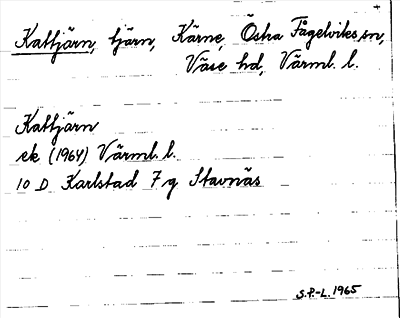 Kattjärn, tjärn, Kärne, Östra Fågelviks sn,
Väse hd, Värml. l.
Kattjärn
ek (1964) Värml. l.
10 D Karlstad 7 g Stavnäs
S.P.-L. 1965